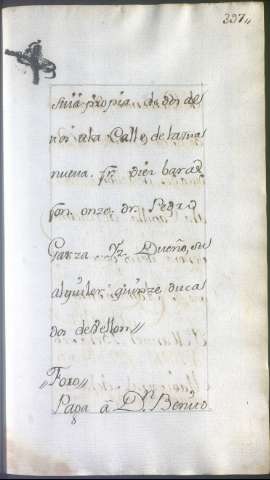 397,,
suia propia, de dos de
recha Calle de la ma
nueva. fr. diez baras
fon. onze Dn. Pedro
Garza Yz. Dueño, su
alquiler quinze duca
dos de Vellon //
,, Foro //
Paga â Dn. Benito